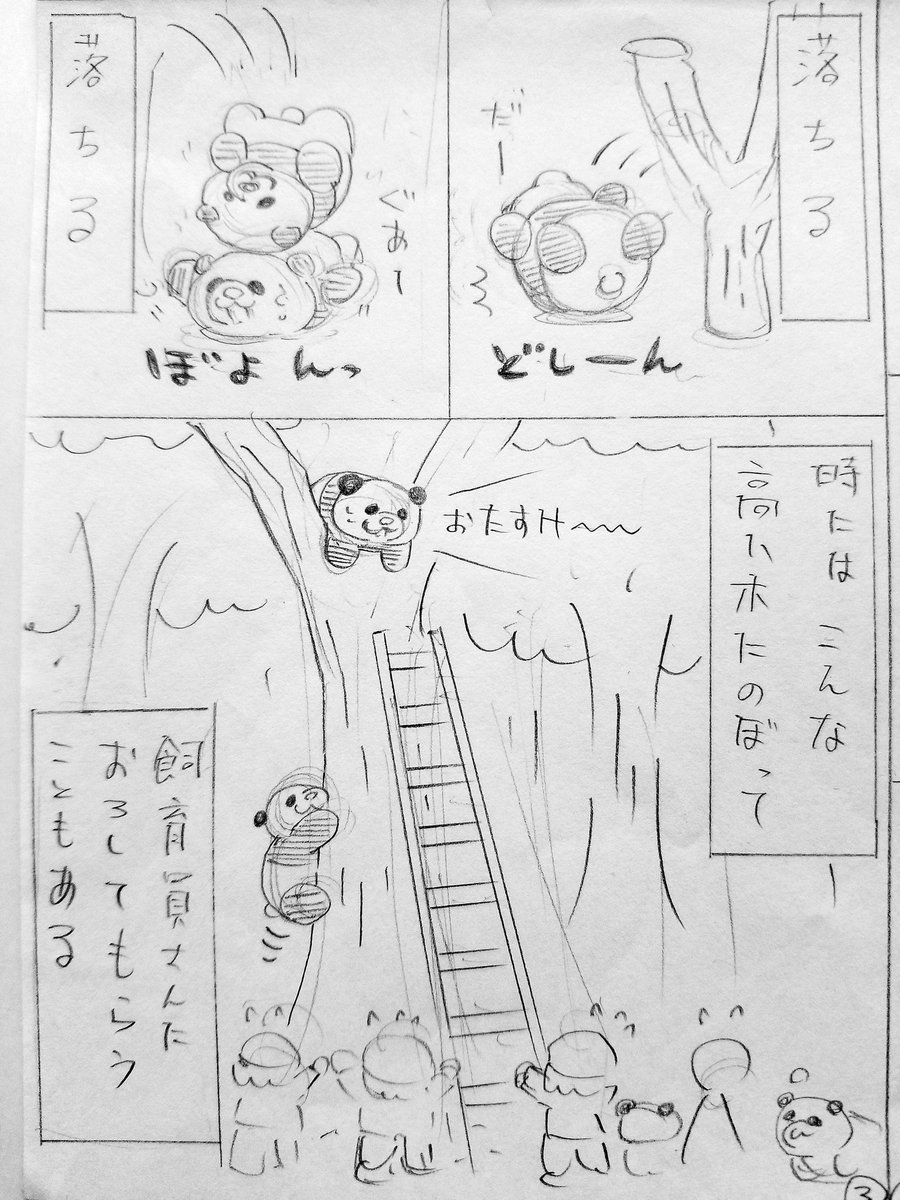 落ちる
だー
どしーん
落ちる
ぐぁー
ぼよんっ
時には こんな
高い木にのぼって
おたすけ〜
飼育員さんに
おろしてもらう
こともある
3